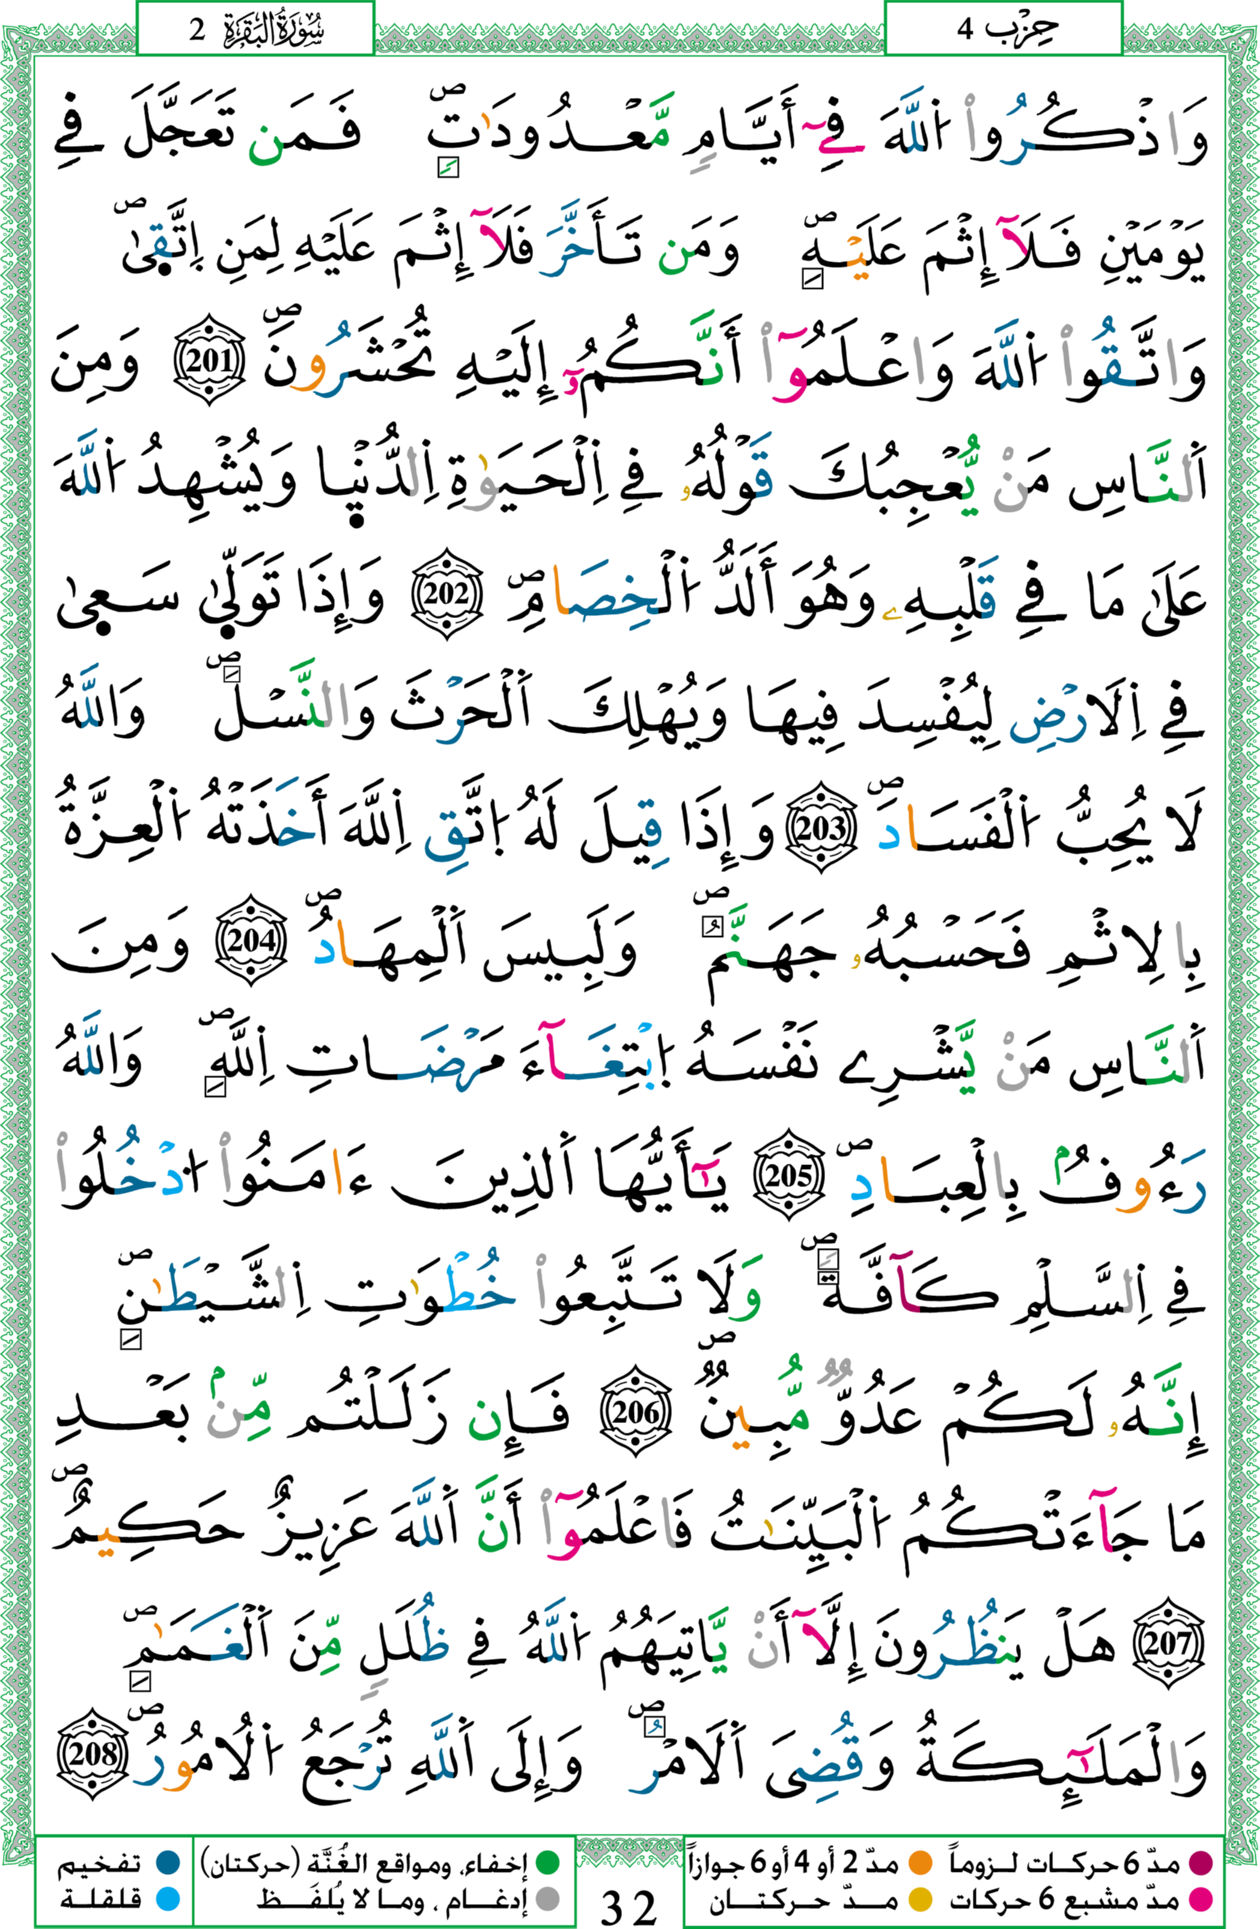 حِزْب 4
سُورَةُ البَقَرَةِ 2
وَاذْكُرُواْ اللَّهَ فِےٓ أَيَّامٍ مَّعْدُودَٰتٍۖ فَمَن تَعَجَّلَ فِے
يَوْمَيْنِ فَلَآ إِثْمَ عَلَيْهِۖ وَمَن تَأَخَّرَ فَلَآ إِثْمَ عَلَيْهِ لِمَنِ اِتَّقىٰۖ
وَاتَّقُواْ اللَّهَ وَاعْلَمُوٓاْ أَنَّكُمُۥٓ إِلَيْهِ تُحْشَرُونَۖ 201 وَمِنَ
اَلنَّاسِ مَنْ يُّعْجِبُكَ قَوْلُهُۥ فِے اِلْحَيَوٰةِ اِلدُّنْيا وَيُشْهِدُ اللَّهَ
عَلَىٰ مَا فِے قَلْبِهِۦ وَهُوَ أَلَدُّ اُلْخِصَامِۖ 202 وَإِذَا تَوَلّىٰ سَعىٰ
فِے اِلَارْضِ لِيُفْسِدَ فِيهَا وَيُهْلِكَ اَلْحَرْثَ وَالنَّسْلَۖ وَاللَّهُ
لَا يُحِبُّ اُلْفَسَادَۖ 203 وَإِذَا قِيلَ لَهُ اُتَّقِ اِللَّهَ أَخَذَتْهُ اُلْعِزَّةُ
بِالِاثْمِ فَحَسْبُهُۥ جَهَنَّمُۖ وَلَبِيسَ اَلْمِهَادُۖ 204 وَمِنَ
اَلنَّاسِ مَنْ يَّشْرِے نَفْسَهُ اُبْتِغَآءَ مَرْضَاتِ اِللَّهِۖ وَاللَّهُ
رَءُوفٌۢ بِالْعِبَادِۖ 205 يَٰٓأَيُّهَا اَلذِينَ ءَامَنُواْ اُدْخُلُواْ
فِے اِلسَّلْمِ كَآفَّةًۖ وَلَا تَتَّبِعُواْ خُطْوَٰتِ اِلشَّيْطَٰنِۖ
إِنَّهُۥ لَكُمْ عَدُوٌّ مُّبِينٌۖ 206 فَإِن زَلَلْتُم مِّنۢ بَعْدِ
مَا جَآءَتْكُمُ اُلْبَيِّنَٰتُ فَاعْلَمُوٓاْ أَنَّ اَللَّهَ عَزِيزٌ حَكِيمٌۖ
207 هَلْ يَنظُرُونَ إِلَّآ أَنْ يَّاتِيَهُمُ اُللَّهُ فِے ظُلَلٍ مِّنَ اَلْغَمَٰمِۖ
وَالْمَلَٰٓئِكَةُ وَقُضِىَ اَلَامْرُۖ وَإِلَى اَللَّهِ تُرْجَعُ اُلُامُورُۖ 208
مدّ 6 حركات لـزومـاً مدّ 2 أو 4 أو 6 جوازاً إخفاء، ومواقع الغُنَّة (حركتان) تفخيم
مدّ مشبع 6 حركات مـدّ حركتـان إدغـام ، ومـا لا يُلفَـظ قلقلة
32